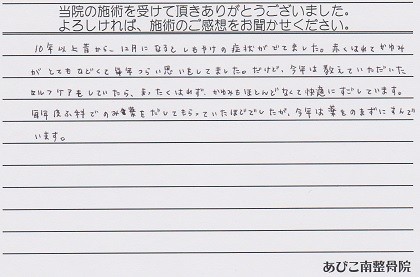 当院の施術を受けて頂きありがとうございました。
よろしければ、施術のご感想をお聞かせください。
10年以上昔から、12月になるとしもやけの症状がでてました。赤くはれてかゆみ
がとてもひどくて毎年つらい思いをしてました。だけど、今年は教えていただいた
セルフケアをしていたら、まったくはれず、かゆみもほとんどなくて快適にすごしています。
毎年皮ふ科でのみ薬をだしてもらっていたほどでしたが、今年は薬をのまずにすんで
います。
あびこ南整骨院